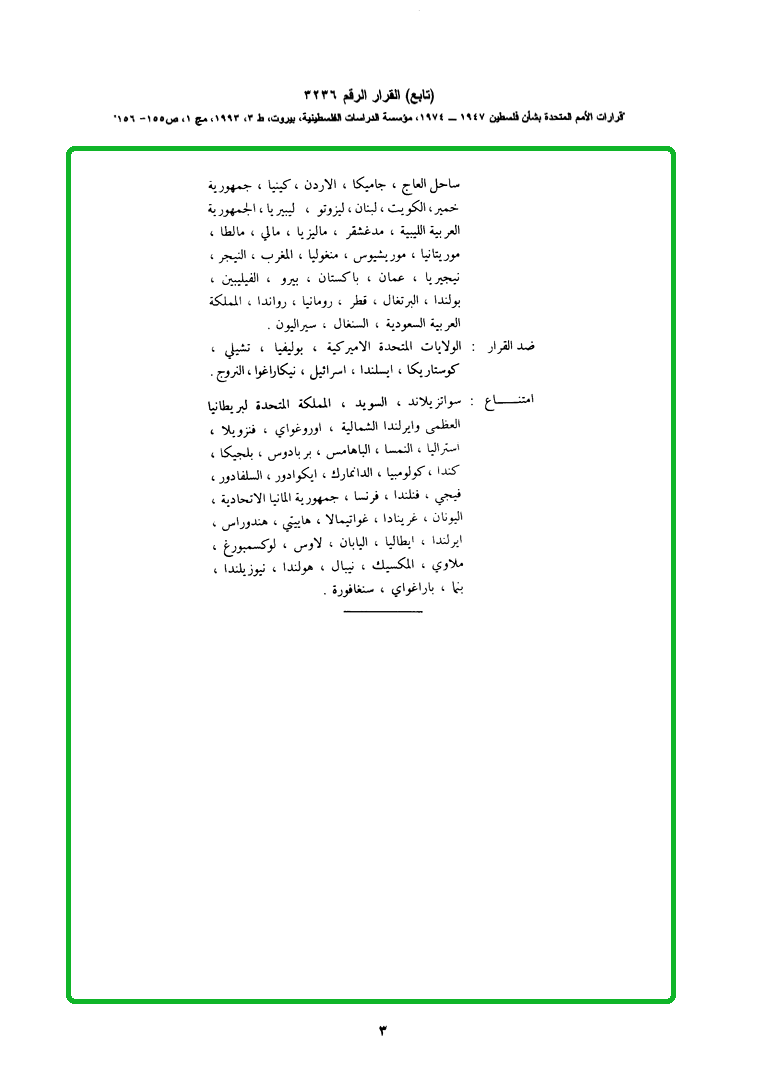 (تابع) القرار الرقم ٣٢٣٦
"قرارات الأمم المتحدة بشأن فلسطين ١٩٤٧ – ١٩٧٤، مؤسسة الدراسات الفلسطينية، بيروت، ط ٣، ١٩٩٣، مج ١، ص١٥٥- ١٥٦"
ساحل العاج ، جاميكا ، الاردن ، كينيا ، جمهورية
خمير، الكويت ، لبنان ، ليزوتو ، ليبيريا ، الجمهورية
العربية الليبية ، مدغشقر ، ماليزيا ، مالي ، مالطا ،
موريتانيا ، موريشيوس ، منغوليا ، المغرب ، النيجر ،
نيجيريا ، عمان ، باكستان ، بيرو ، الفيليبين ،
بولندا ، البرتغال ، قطر ، رومانيا ، رواندا ، المملكة
العربية السعودية ، السنغال ، سيراليون .
ضد القرار : الولايات المتحدة الاميركية ، بوليفيا ، تشيلي ،
كوستاريكا ، ايسلندا ، اسرائيل ، نيكاراغوا ، النروج .
امتنـــــاع : سواتزيلاند ، السويد ، المملكة المتحدة لبريطانيا
العظمى وايرلندا الشمالية ، اوروغواي ، فنزويلا ،
استراليا ، النمسا ، الباهامس ، بربادوس ، بلجيكا ،
كندا ، كولومبيا ، الدانمارك ، ايكوادور ، السلفادور ،
فيجي ، فنلندا ، فرنسا ، جمهورية المانيا الاتحادية ،
اليونان ، غرينادا ، غواتيمالا ، هاييتي ، هندوراس ،
ايرلندا ، ايطاليا ، اليابان ، لاوس ، لوكسمبورغ ،
ملاوي ، المكسيك ، نيبال ، هولندا ، نيوزيلندا ،
بنما ، باراغواي ، سنغافورة .
٣